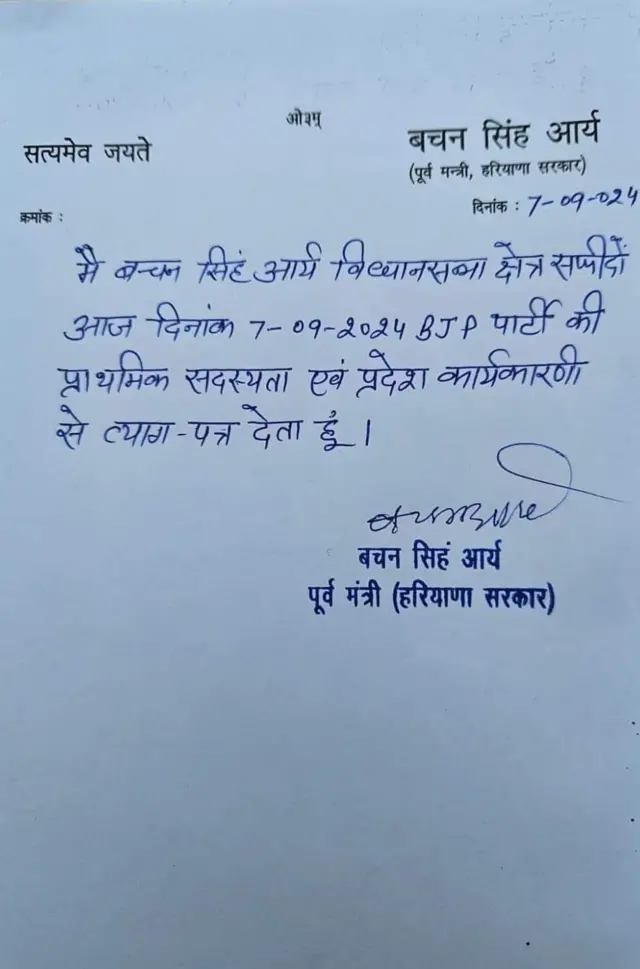 ओ३म्
सत्यमेव जयते
बचन सिंह आर्य
(पूर्व मन्त्री, हरियाणा सरकार)
क्रमांक :
दिनांक : 7-09-024
मै बच्चन सिंह आर्य विधानसभा क्षेत्र सफीदों
आज दिनांक 7-09-2024 BJP पार्टी की
प्राथमिक सदस्यता एवं प्रदेश कार्यकारणी
से त्याग-पत्र देता हूं।
बचन सिहं आर्य
पूर्व मंत्री (हरियाणा सरकार)